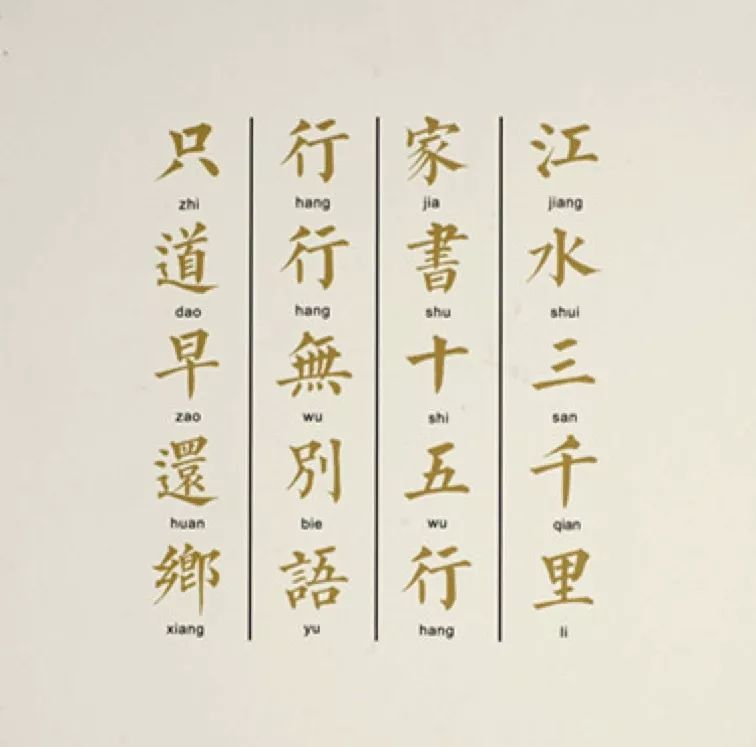 江水三千里
jiang shui san qian li
家書十五行
jia shu shi wu hang
行行無別語
hang hang wu bie yu
只道早還鄉
zhi dao zao huan xiang